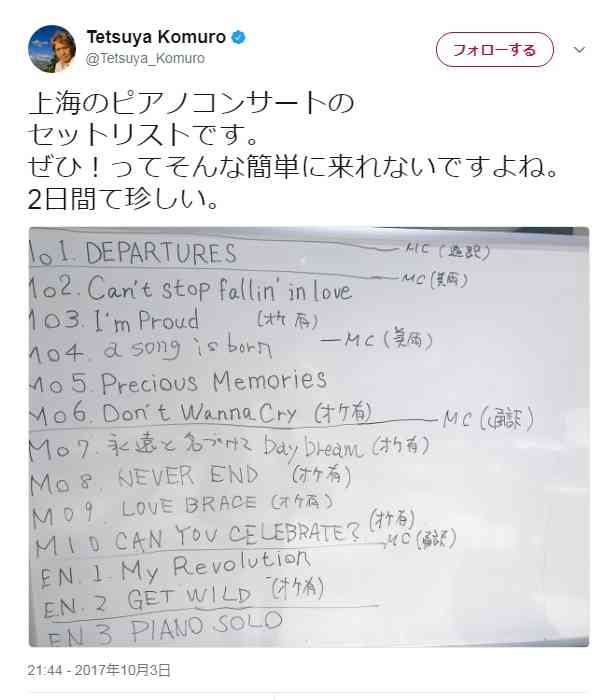 Tetsuya Komuro
@Tetsuya_Komuro
フォローする
上海のピアノコンサートの
セットリストです。
ぜひ！ってそんな簡単に来れないですよね。
2日間て珍しい。
Mo 1. DEPARTURES MC (通訳)
Mo 2. Can't stop fallin' in love MC
MO 3. I'm Proud (オケ有)
MO 4. a song is born MC
Mo 5. Precious Memories
Mo 6. Don't Wanna Cry (オケ有) MC (通訳)
Mo 7. 永遠と名づけて Daydream (オケ有)
Mo 8. NEVER END (オケ有)
MO 9. LOVE BRACE (オケ有)
M10 CAN YOU CELEBRATE? (オケ有) MC (通訳)
EN. 1. My Revolution
EN. 2 GET WILD (オケ有)
EN 3 PIANO SOLO
21:44 - 2017年10月3日